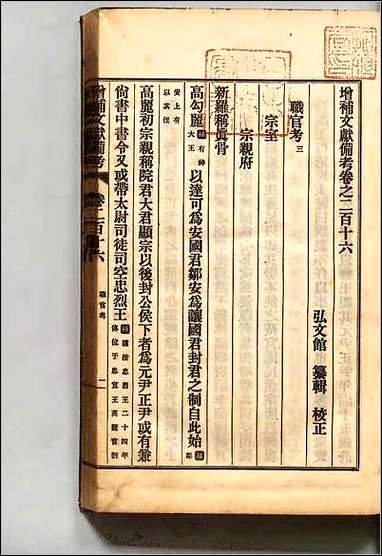 增補文獻備考卷之二百十六
弘文館 纂輯 校正
職官考 三
宗室
宗親府
新羅稱眞骨
高句麗
大王
以達可爲安國君鄒安爲讓國君封君之制自此始
高麗初宗親稱院君大君顯宗以後封公侯下者爲元尹正尹或有兼
尙書中書令又或帶太尉司徒司空忠烈王
謹按忠烈王二十四年
傳位于忠宣王高麗官制
增補文獻備考
卷二百十六
職官考
一